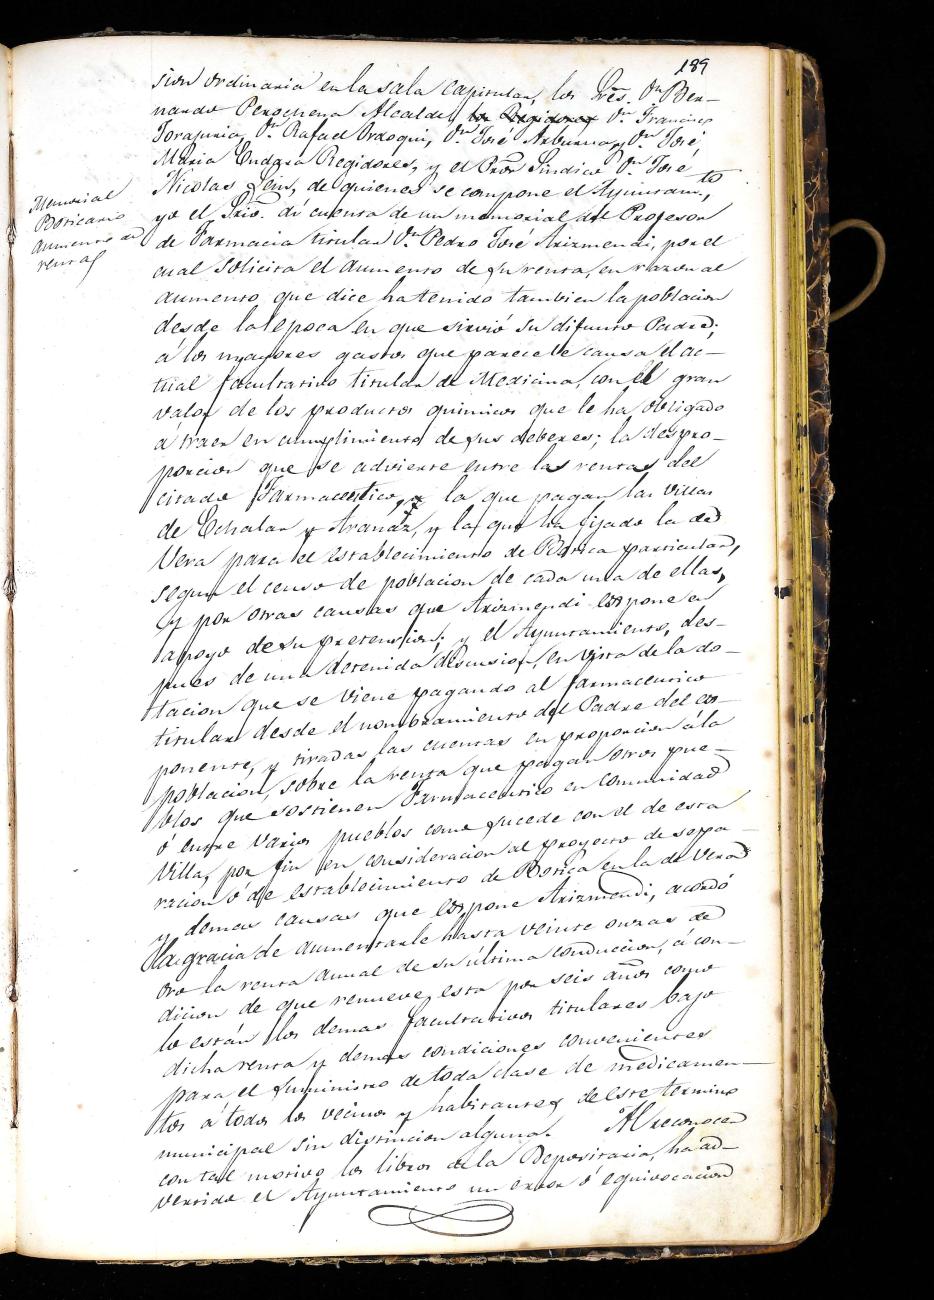 189
sion ordinaria en la sala capitular, los Sres. Dn Ber-
nardo Perochena Alcalde, los Regidores Dn Francisco
Torajuria, Dn Rafael Ordoqui, Dn José Arburua, y Dn José
Maria Endara Regidores, y el Pror Sindico Dn José
Nicolas Leiu, de quienes se compone el Ayuntamto,
Memorial
Boticario
Aumento de
renta
yo el Srio. dí cuenta de un memorial del Profesor
de Farmacia titular Dn Pedro José Arizmendi, por el
cual solicita el aumento de su renta, en razon al
aumento, que dice ha tenido tambien la poblacion
desde la epoca en que sirvió su difunto Padre;
á los mayores gastos que parece le causa el ac-
tual facultativo titular de Medicina, con el gran
valor de los productos quimicos que le ha obligado
á traer en cumplimiento de sus deberes; la despro-
porcion que se advierte entre las rentas del
citado Farmaceutico, y la que pagan las villas
de Echalar y Aranáz, y la que ha fijado la de
Vera para el establecimiento de Botica particular,
segun el censo de poblacion de cada una de ellas,
y por otras causas que Arizmendi espone en
apoyo de su pretension; y el Ayuntamiento, des-
pues de una detenida discusion, en vista de la do-
tacion que se viene pagando al farmaceutico
titular desde el nombramiento del Padre del es-
ponente, y tiradas las cuentas en proporcion á la
poblacion, sobre la renta que pagan otros pue-
blos que sostienen Farmaceutico en comunidad
ó entre varios pueblos como sucede con el de esta
Villa, por fin en consideracion al proyecto de sepa-
racion ó de establecimiento de Botica en la de Vera
y demas causas que espone Arizmendi, acordó
la gracia de aumentarle hasta veinte onzas de
oro la renta anual de su última conduccion, á con-
dicion de que renueve esta por seis años como
lo están los demas facultativos titulares bajo
dicha renta y demas condiciones convenientes
para el suministro de toda clase de medicamen-
tos á todos los vecinos y habitantes de este termino
municipal sin distincion alguna. Al reconocer
con tal motivo los libros de la Depositaria, ha ad-
vertido el Ayuntamiento un error ó equivocacion